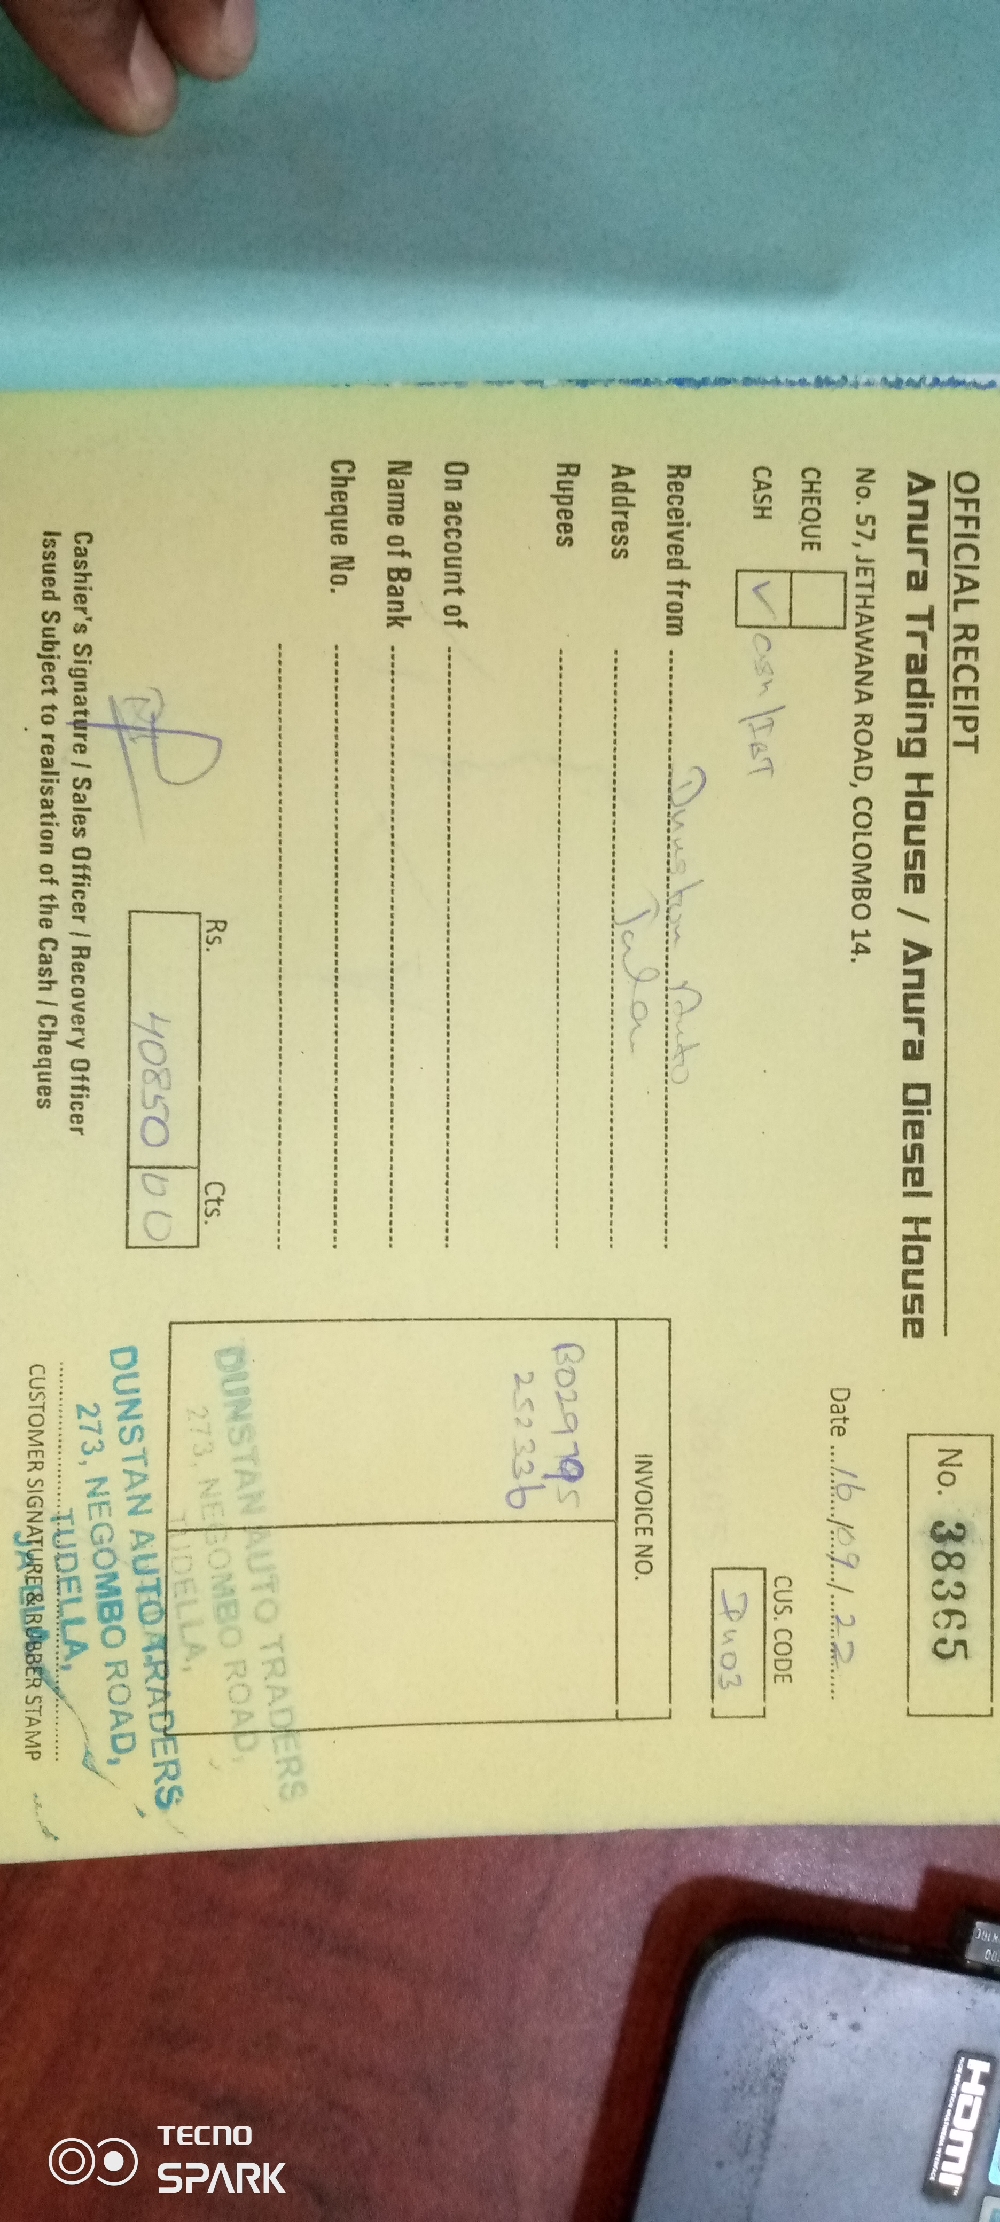 OFFICIAL RECEIPT
Anura Trading House / Anura Diesel House
No. 57, JETHAWANA ROAD, COLOMBO 14.
No. 38365
Date 16/09/22
CHEQUE
CASH ✓ Cash / IBT
CUS. CODE
Du03
Received from Dunstan Auto
Address
Rupees
On account of
Name of Bank
Cheque No.
INVOICE NO.
B029795
252336
Rs. Cts.
40850 00
Cashier's Signature / Sales Officer / Recovery Officer
Issued Subject to realisation of the Cash / Cheques
DUNSTAN AUTO TRADERS
273, NEGOMBO ROAD,
TUDELLA,
DUNSTAN AUTO TRADERS
273, NEGOMBO ROAD,
TUDELLA,
JA-ELA
CUSTOMER SIGNATURE & RUBBER STAMP
HDMI
TECNO
SPARK